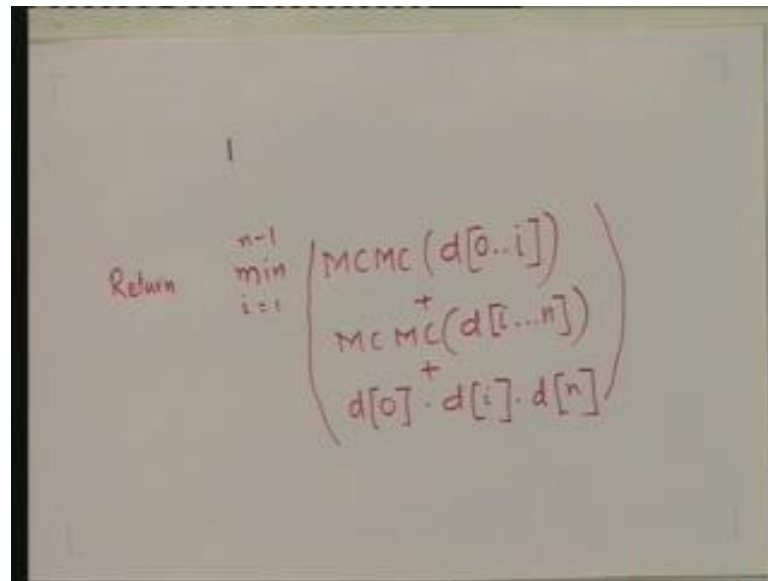 n-1
Return min
i=1
MCMC (d[0..i])
+
MCMC (d[i...n])
+
d[0] . d[i] . d[n]